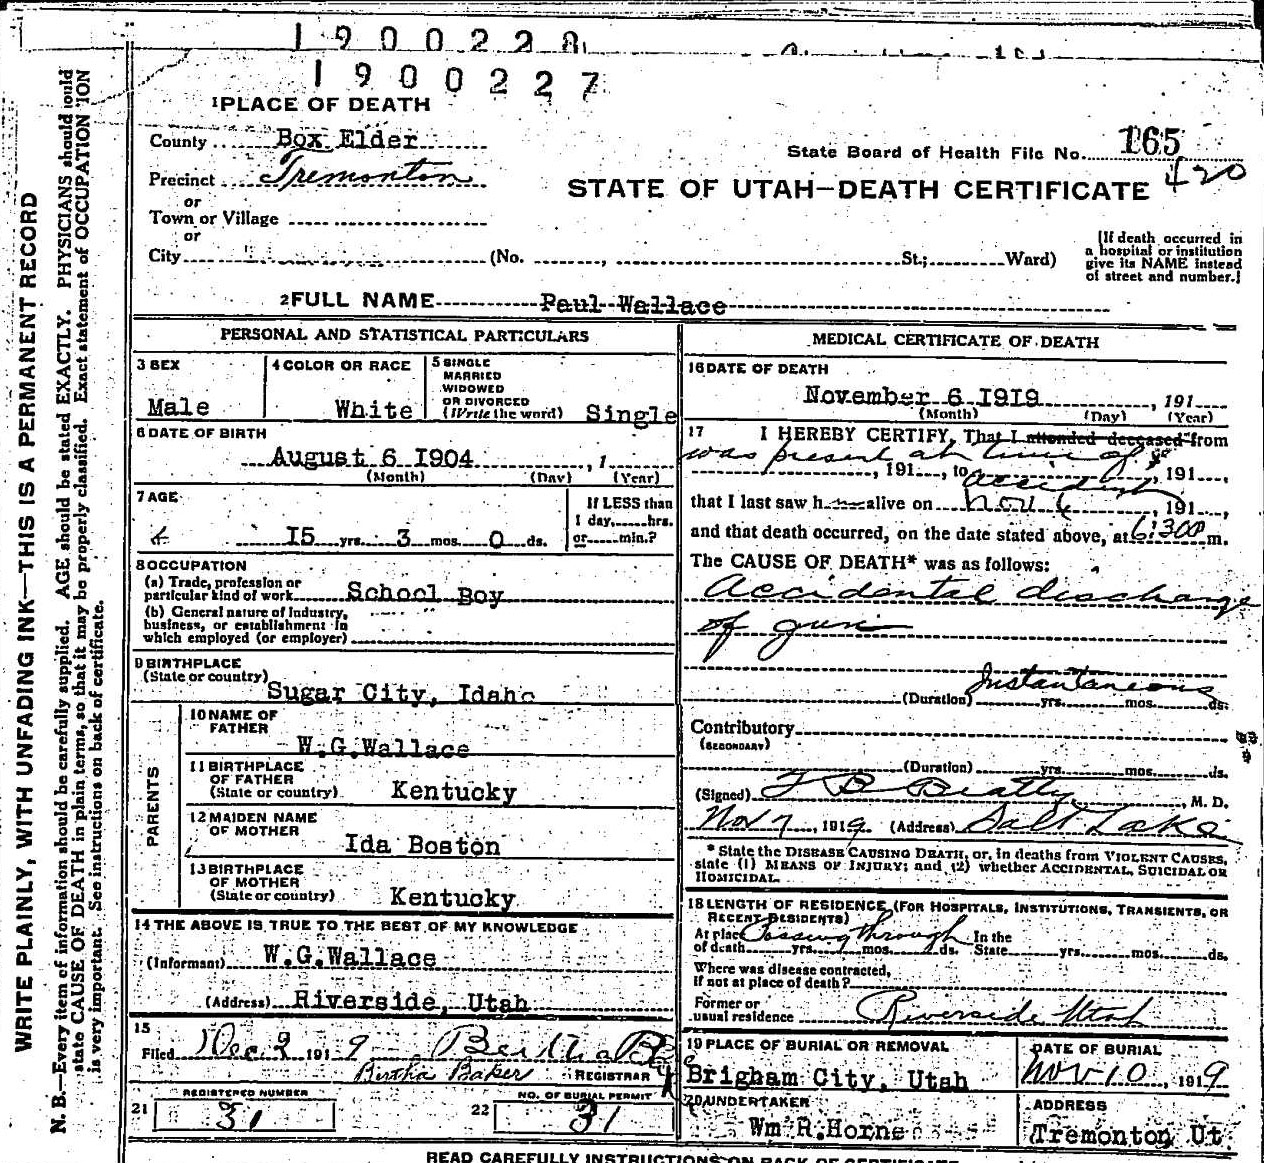 1900228
1900227
1 PLACE OF DEATH
County Box Elder
State Board of Health File No. 165
420
Precinct Tremonton
STATE OF UTAH—DEATH CERTIFICATE
or
Town or Village
or
City (No. , St.; Ward)
[If death occurred in
a hospital or institution
give its NAME instead
of street and number.]
2 FULL NAME Paul Wallace
PERSONAL AND STATISTICAL PARTICULARS
3 SEX
Male
4 COLOR OR RACE
White
5 SINGLE
MARRIED
WIDOWED
OR DIVORCED
(Write the word) Single
6 DATE OF BIRTH
August 6 1904 , 1
(Month) (Day) (Year)
7 AGE
15 yrs. 3 mos. 0 ds.
If LESS than
1 day, hrs.
or min.?
8 OCCUPATION
(a) Trade, profession or
particular kind of work School Boy
(b) General nature of Industry,
business, or establishment in
which employed (or employer)
9 BIRTHPLACE
(State or country) Sugar City, Idaho
PARENTS
10 NAME OF
FATHER
W.G.Wallace
11 BIRTHPLACE
OF FATHER
(State or country) Kentucky
12 MAIDEN NAME
OF MOTHER
Ida Boston
13 BIRTHPLACE
OF MOTHER
(State or country) Kentucky
14 THE ABOVE IS TRUE TO THE BEST OF MY KNOWLEDGE
(Informant) W.G.Wallace
(Address) Riverside, Utah
15
Filed Dec. 2 1919 Bertha
Bertha Baker REGISTRAR
REGISTERED NUMBER
21 31
NO. OF BURIAL PERMIT
22 31
MEDICAL CERTIFICATE OF DEATH
16 DATE OF DEATH
November 6 1919 , 191
(Month) (Day) (Year)
17 I HEREBY CERTIFY, That I attended deceased from
was present at time of
, 191 , to , 191 ,
accident
that I last saw h alive on Nov 6 , 191 ,
and that death occurred, on the date stated above, at 6:30P m.
The CAUSE OF DEATH* was as follows:
Accidental discharge
of gun
Instantaneous
(Duration) yrs. mos. ds.
Contributory
(SECONDARY)
(Duration) yrs. mos. ds.
(Signed) T B Beatty , M. D.
Nov 7 , 1919. (Address) Salt Lake
* State the DISEASE CAUSING DEATH, or, in deaths from VIOLENT CAUSES,
state (1) MEANS OF INJURY; and (2) whether ACCIDENTAL, SUICIDAL OR
HOMICIDAL.
18 LENGTH OF RESIDENCE (FOR HOSPITALS, INSTITUTIONS, TRANSIENTS, OR
RECENT RESIDENTS)
At place Passing through In the
of death yrs. mos. ds. State yrs. mos. ds.
Where was disease contracted,
If not at place of death?
Former or
usual residence Riverside Utah
19 PLACE OF BURIAL OR REMOVAL
Brigham City, Utah
DATE OF BURIAL
Nov 10 , 1919
20 UNDERTAKER
Wm R.Horne
ADDRESS
Tremonton Ut
READ CAREFULLY INSTRUCTIONS ON BACK OF CERTIFICATE
WRITE PLAINLY, WITH UNFADING INK—THIS IS A PERMANENT RECORD
N. B.—Every item of information should be carefully supplied. AGE should be stated EXACTLY. PHYSICIANS should
state CAUSE OF DEATH in plain terms, so that it may be properly classified. Exact statement of OCCUPATION
is very important. See instructions on back of certificate.